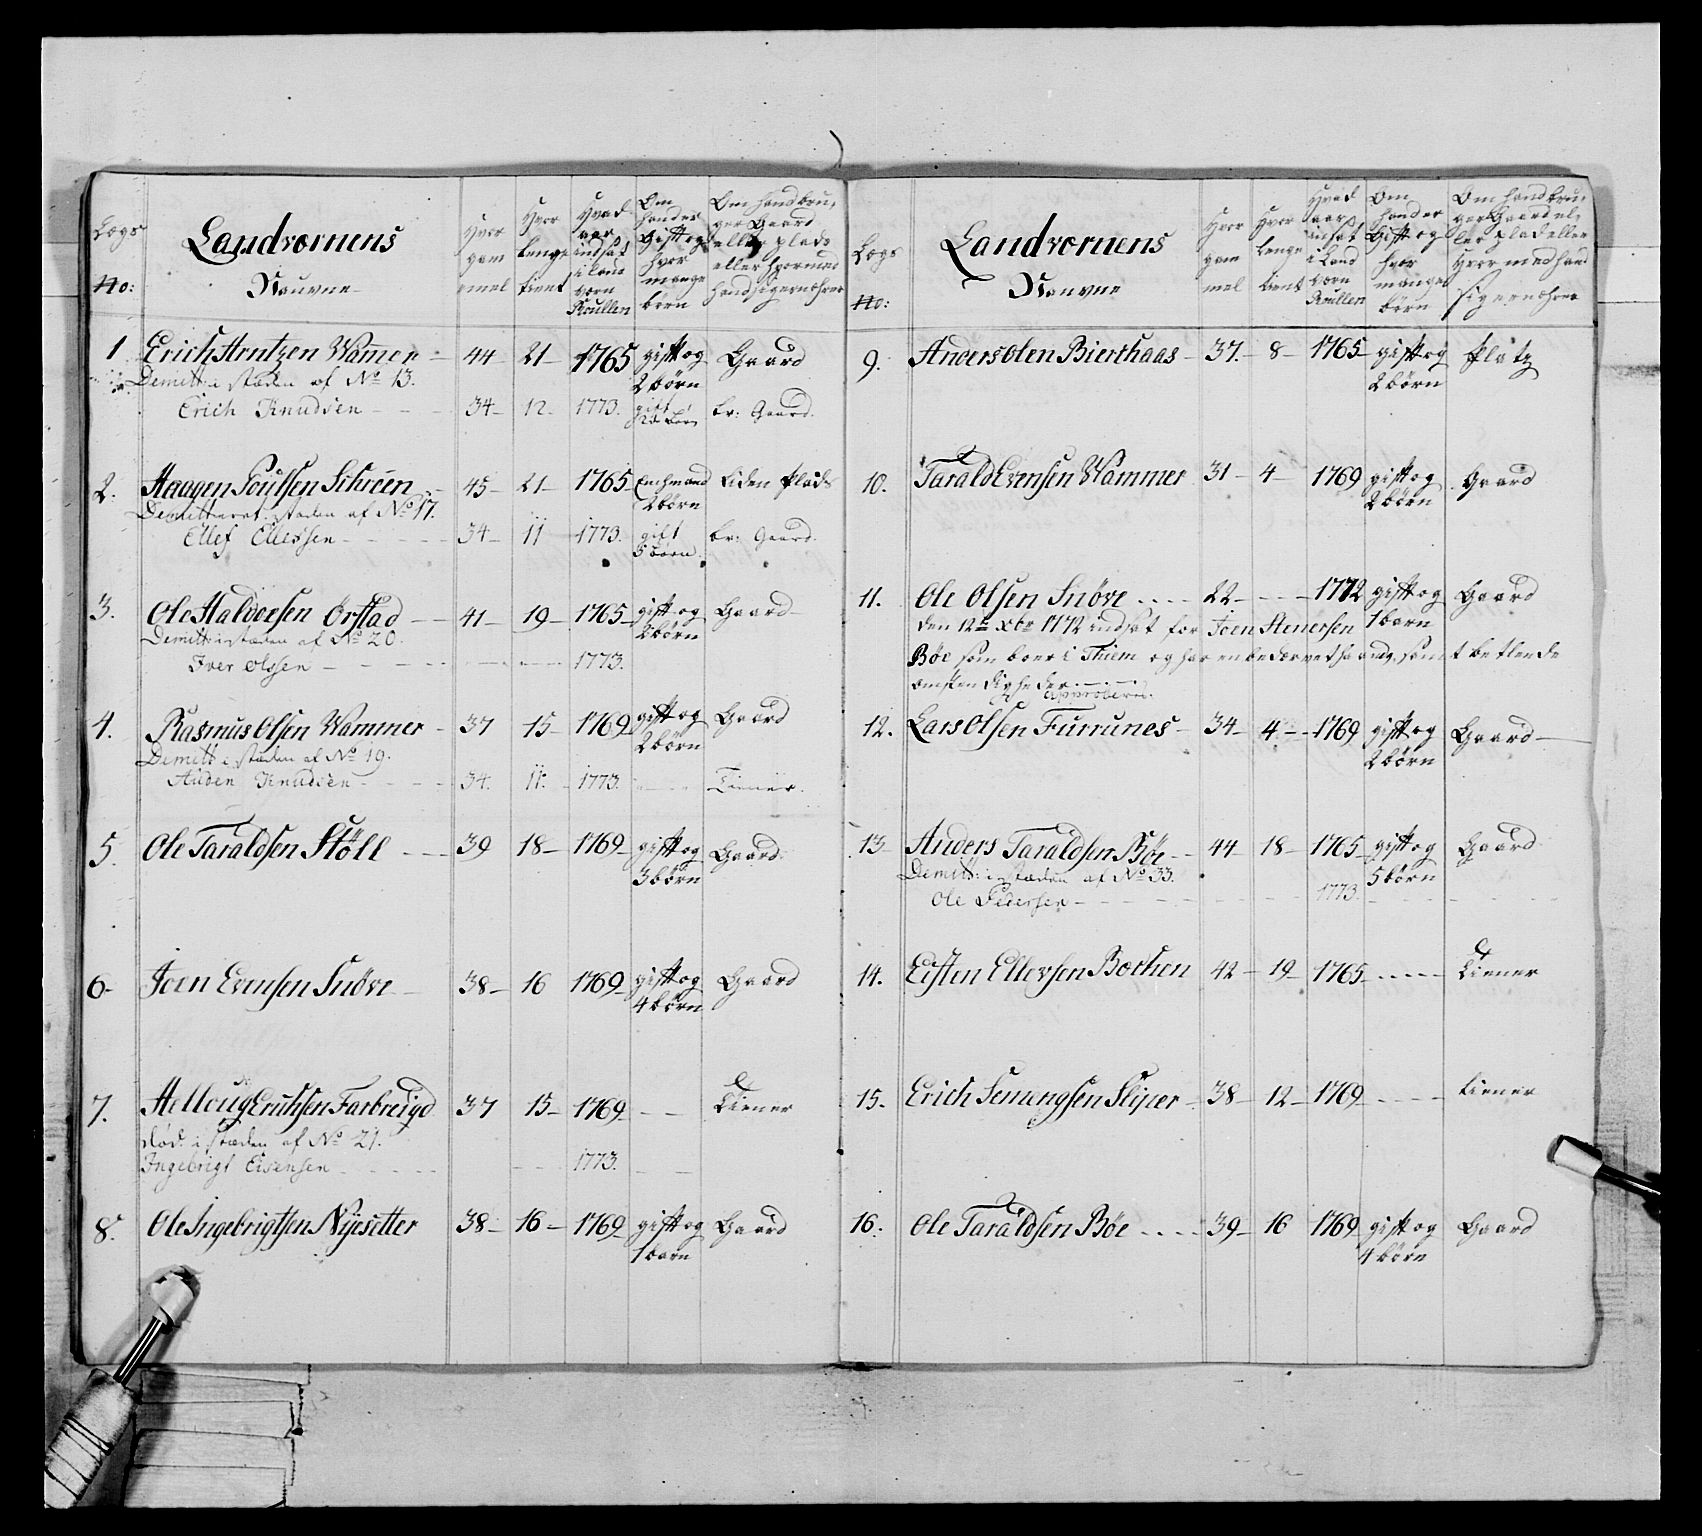 Lægs No:
Landvornens Nauvne
Hvor gammel
Hvor lenge tient
Hvad aar indsat i land vorn Roullen
Om hand er Gift og hvor mange børn
Om hand bruger Gaard eller plads eller hvormed hand sig ernæhrer
1 Erich Arntzen Wammer - 44 - 21 - 1765 gift og 2 børn Gaard
Demitt: i stæden af No 13.
Erich Knudsen - - - 34 - 12 - 1773. gift br: Gaard.
2. Haagen Poulsen Schreen - 45 - 21 - 1765 Enchmand 2 børn Liden plads
Demitteret i stæden af No 17.
Ellef Ellefsen - - - 34 - 11 1773. gift 5 børn. br: Gaard.
3. Ole Haldorsen Örstad - 41 - 19 - 1765 gift og 2 børn Gaard
Demitt: i stæden af No 20.
Iver Olssen - - - 1773.
4. Rasmus Olsen Wammer - 37 15 - 1769 gift og 2 børn Gaard
Demitt i stæden af No 19.
Auden Knudsen - - - 34. 11. 1773. Tiener.
5. Ole Taraldsen Stöll - 39 18 - 1769 - gift og 3 børn Gaard.
6 - Joen Evensen Snöve - 38 - 16 1769 - gift og 4 børn Gaard
7. Helloug Erichsen Farbreigd 37 15 - 1769 - - - Tiener
død. i stæden af No 21.
Ingebrigt Eisensen - - - 1773.
8. Ole Ingebrigtsen Nyesetter 38 - 16 - 1769 - gift og 1 barn Gaard
Lægs No:
Landvornens Nauvne
Hvor gammel
Hvor lenge tient
Hvad aar insat i Land vorn Roullen
Om hand er Gift og hvor mange børn
Om hand bruger Gaard eller plads eller hvormed hand sig ernæhrer
9. Anders Olen Bierthaas - 37. - 8 - 1765 - gift og 2 børn plåtz
10. Tarald Evensen Wammer 31 - 4 - 1769 gift og 2 børn Gaard
11. Ole Olsen Snöve .... 22 - - - 1772 gift og 1 barn Gaard
den 12te Xbr 1772 indsat for Joen Stenersen
Böe som boer i Thiem og har en bedærvet haand, samt betlende
omstendigheder
approberes.
12. Lars Olsen Furrunes - 34 - 4 - - 1769 gift og 2 børn Gaard -
13 - Anders Taraldsen Böe - 44 - 18 - 1765 - gift og 5 børn Gaard
Demitt: i stæden af No 33.
Ole Pedersen - - - 1773.
14. Eisten Ellevsen Bochen 42 - 19 - 1765 - - - - Tiener
15. Erich Semmingsen Sliper - 38 - 12 - 1769 - - - - tiener
16. Ole Taraldsen Böe .... 39 - 16 1769 gift og 4 børn Gaard